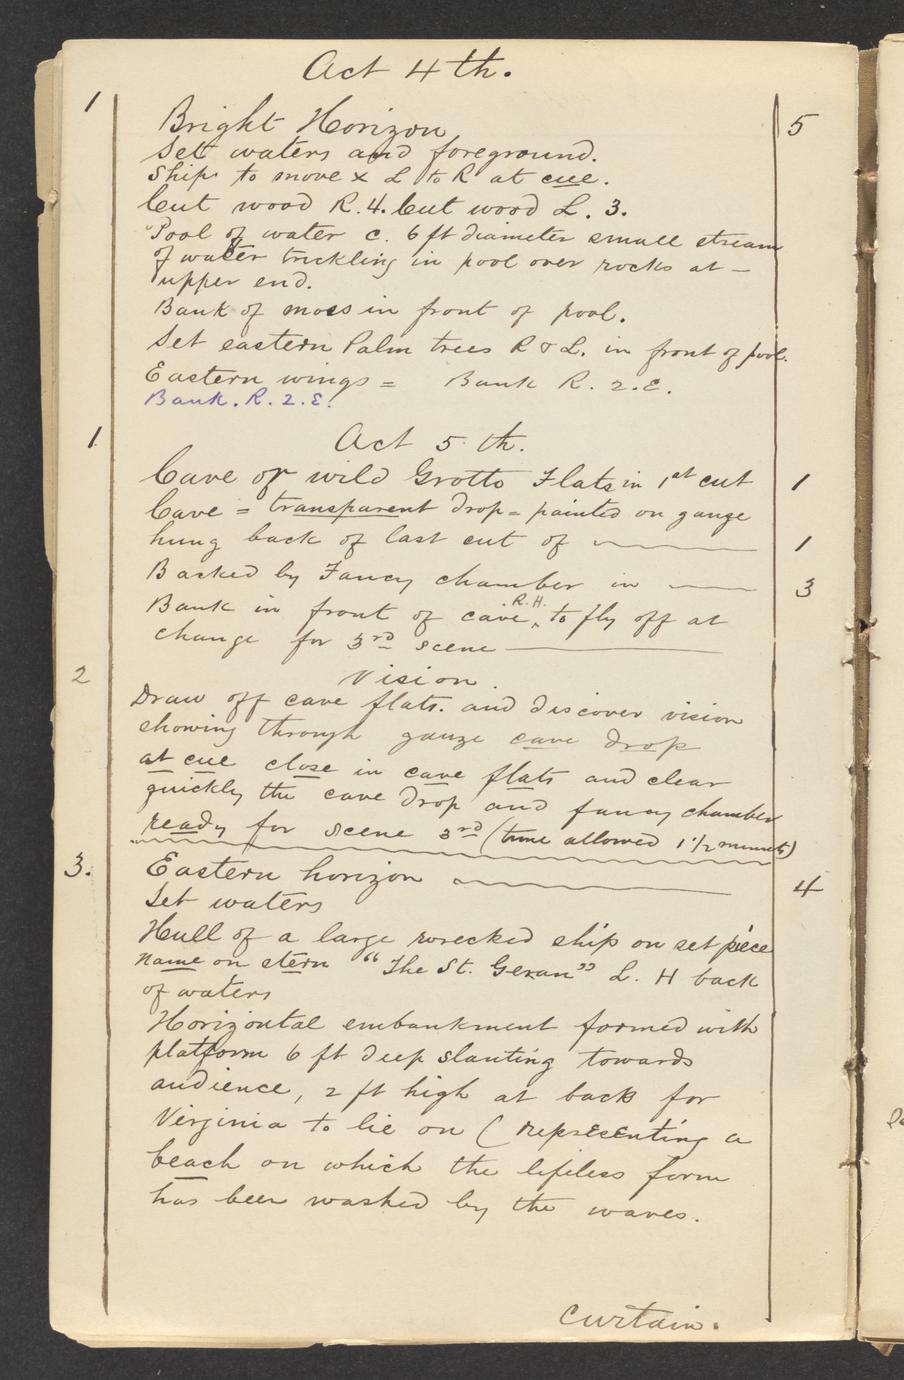 Act 4th.
1 Bright Horizon 5
Set waters and foreground.
Ship to move x L to R at cue.
Cut wood R. 4. Cut wood L. 3.
Pool of water c. 6 ft diameter small stream
of water trickling in pool over rocks at –
upper end.
Bank of moss in front of pool.
Set eastern Palm trees R & L. in front of pool.
Eastern wings = Bank R. 2. E.
Bank. R. 2. E.
1. Act 5th.
Cave or wild Grotto Flats in 1st cut 1
Cave = transparent drop = painted on gauze
hung back of last cut of 1
Backed by Fancy chamber in 3
Bank in front of cave R.H. to fly off at
change for 3rd scene
2 Vision
Draw off cave flats. and discover vision
showing through gauze cave drop
at cue close in cave flats and clear
quickly the cave drop and fancy chamber
ready for scene 3rd (time allowed 1 1/2 minuets)
3. Eastern horizon 4
Set waters
Hull of a large wrecked ship on set piece
Name on stern "The St. Geran" L. H back
of waters
Horizontal embankment formed with
platform 6 ft deep slanting towards
audience, 2 ft high at back for
Virginia to lie on ( representing a
beach on which the lifeless form
has been washed by the waves.
Curtain.